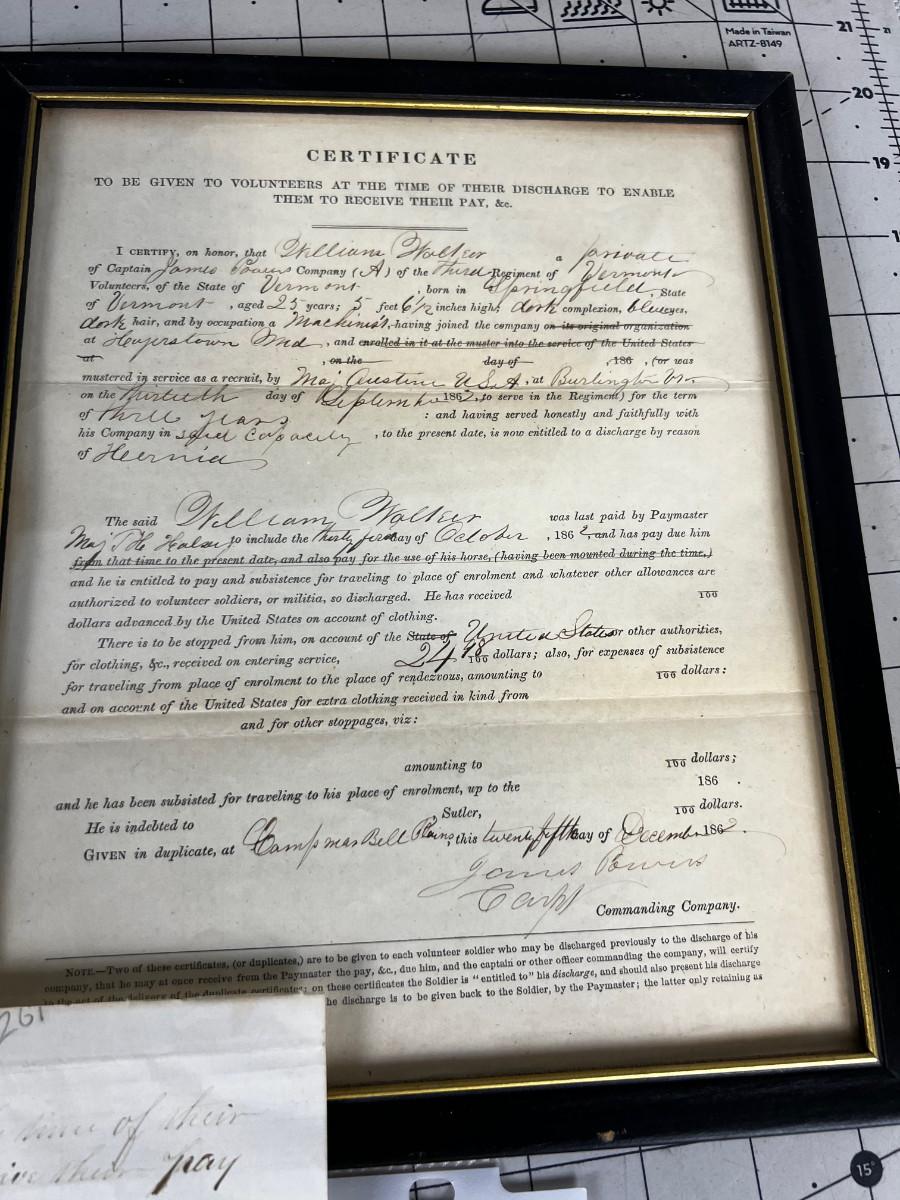 Made in Taiwan
ARTZ-8149
21
21
20
19
CERTIFICATE
TO BE GIVEN TO VOLUNTEERS AT THE TIME OF THEIR DISCHARGE TO ENABLE
THEM TO RECEIVE THEIR PAY, &c.
I CERTIFY, on honor, that William Walker a private
of Captain James Powers Company (A) of the third Regiment of Vermont
Volunteers, of the State of Vermont, born in Springfield, State
of Vermont, aged 25 years; 5 feet 6 1/2 inches high; dark complexion, blue eyes,
dark hair, and by occupation a Machinist, having joined the company on its original organization
at Hagerstown Md, and enrolled in it at the muster into the service of the United States
at , on the day of , 186 , (or was
mustered in service as a recruit, by Maj Austine U.S.A, at Burlington Vt
on the thirtieth day of September 1862, to serve in the Regiment) for the term
of three years : and having served honestly and faithfully with
his Company in said Capacity, to the present date, is now entitled to a discharge by reason
of Hernia
The said William Walker was last paid by Paymaster
Maj T H Halsey to include the thirty first day of October, 1862, and has pay due him
from that time to the present date, and also pay for the use of his horse, (having been mounted during the time,)
and he is entitled to pay and subsistence for traveling to place of enrolment and whatever other allowances are
authorized to volunteer soldiers, or militia, so discharged. He has received 100
dollars advanced by the United States on account of clothing.
There is to be stopped from him, on account of the State of United States or other authorities,
for clothing, &c., received on entering service, 24 98/100 dollars; also, for expenses of subsistence
for traveling from place of enrolment to the place of rendezvous, amounting to 100 dollars:
and on account of the United States for extra clothing received in kind from
and for other stoppages, viz:
amounting to 100 dollars;
and he has been subsisted for traveling to his place of enrolment, up to the 186 .
He is indebted to Sutler, 100 dollars.
GIVEN in duplicate, at Camp near Bell Plains, this twenty fifth day of December 1862.
James Powers
Capt Commanding Company.
NOTE.—Two of these certificates, (or duplicates,) are to be given to each volunteer soldier who may be discharged previously to the discharge of his
company, that he may at once receive from the Paymaster the pay, &c., due him, and the captain or other officer commanding the company, will certify
to the act of the delivery of the duplicate certificates; on these certificates the Soldier is "entitled to" his discharge, and should also present his discharge
he discharge is to be given back to the Soldier, by the Paymaster; the latter only retaining as
261
time of their
ive their pay
15°